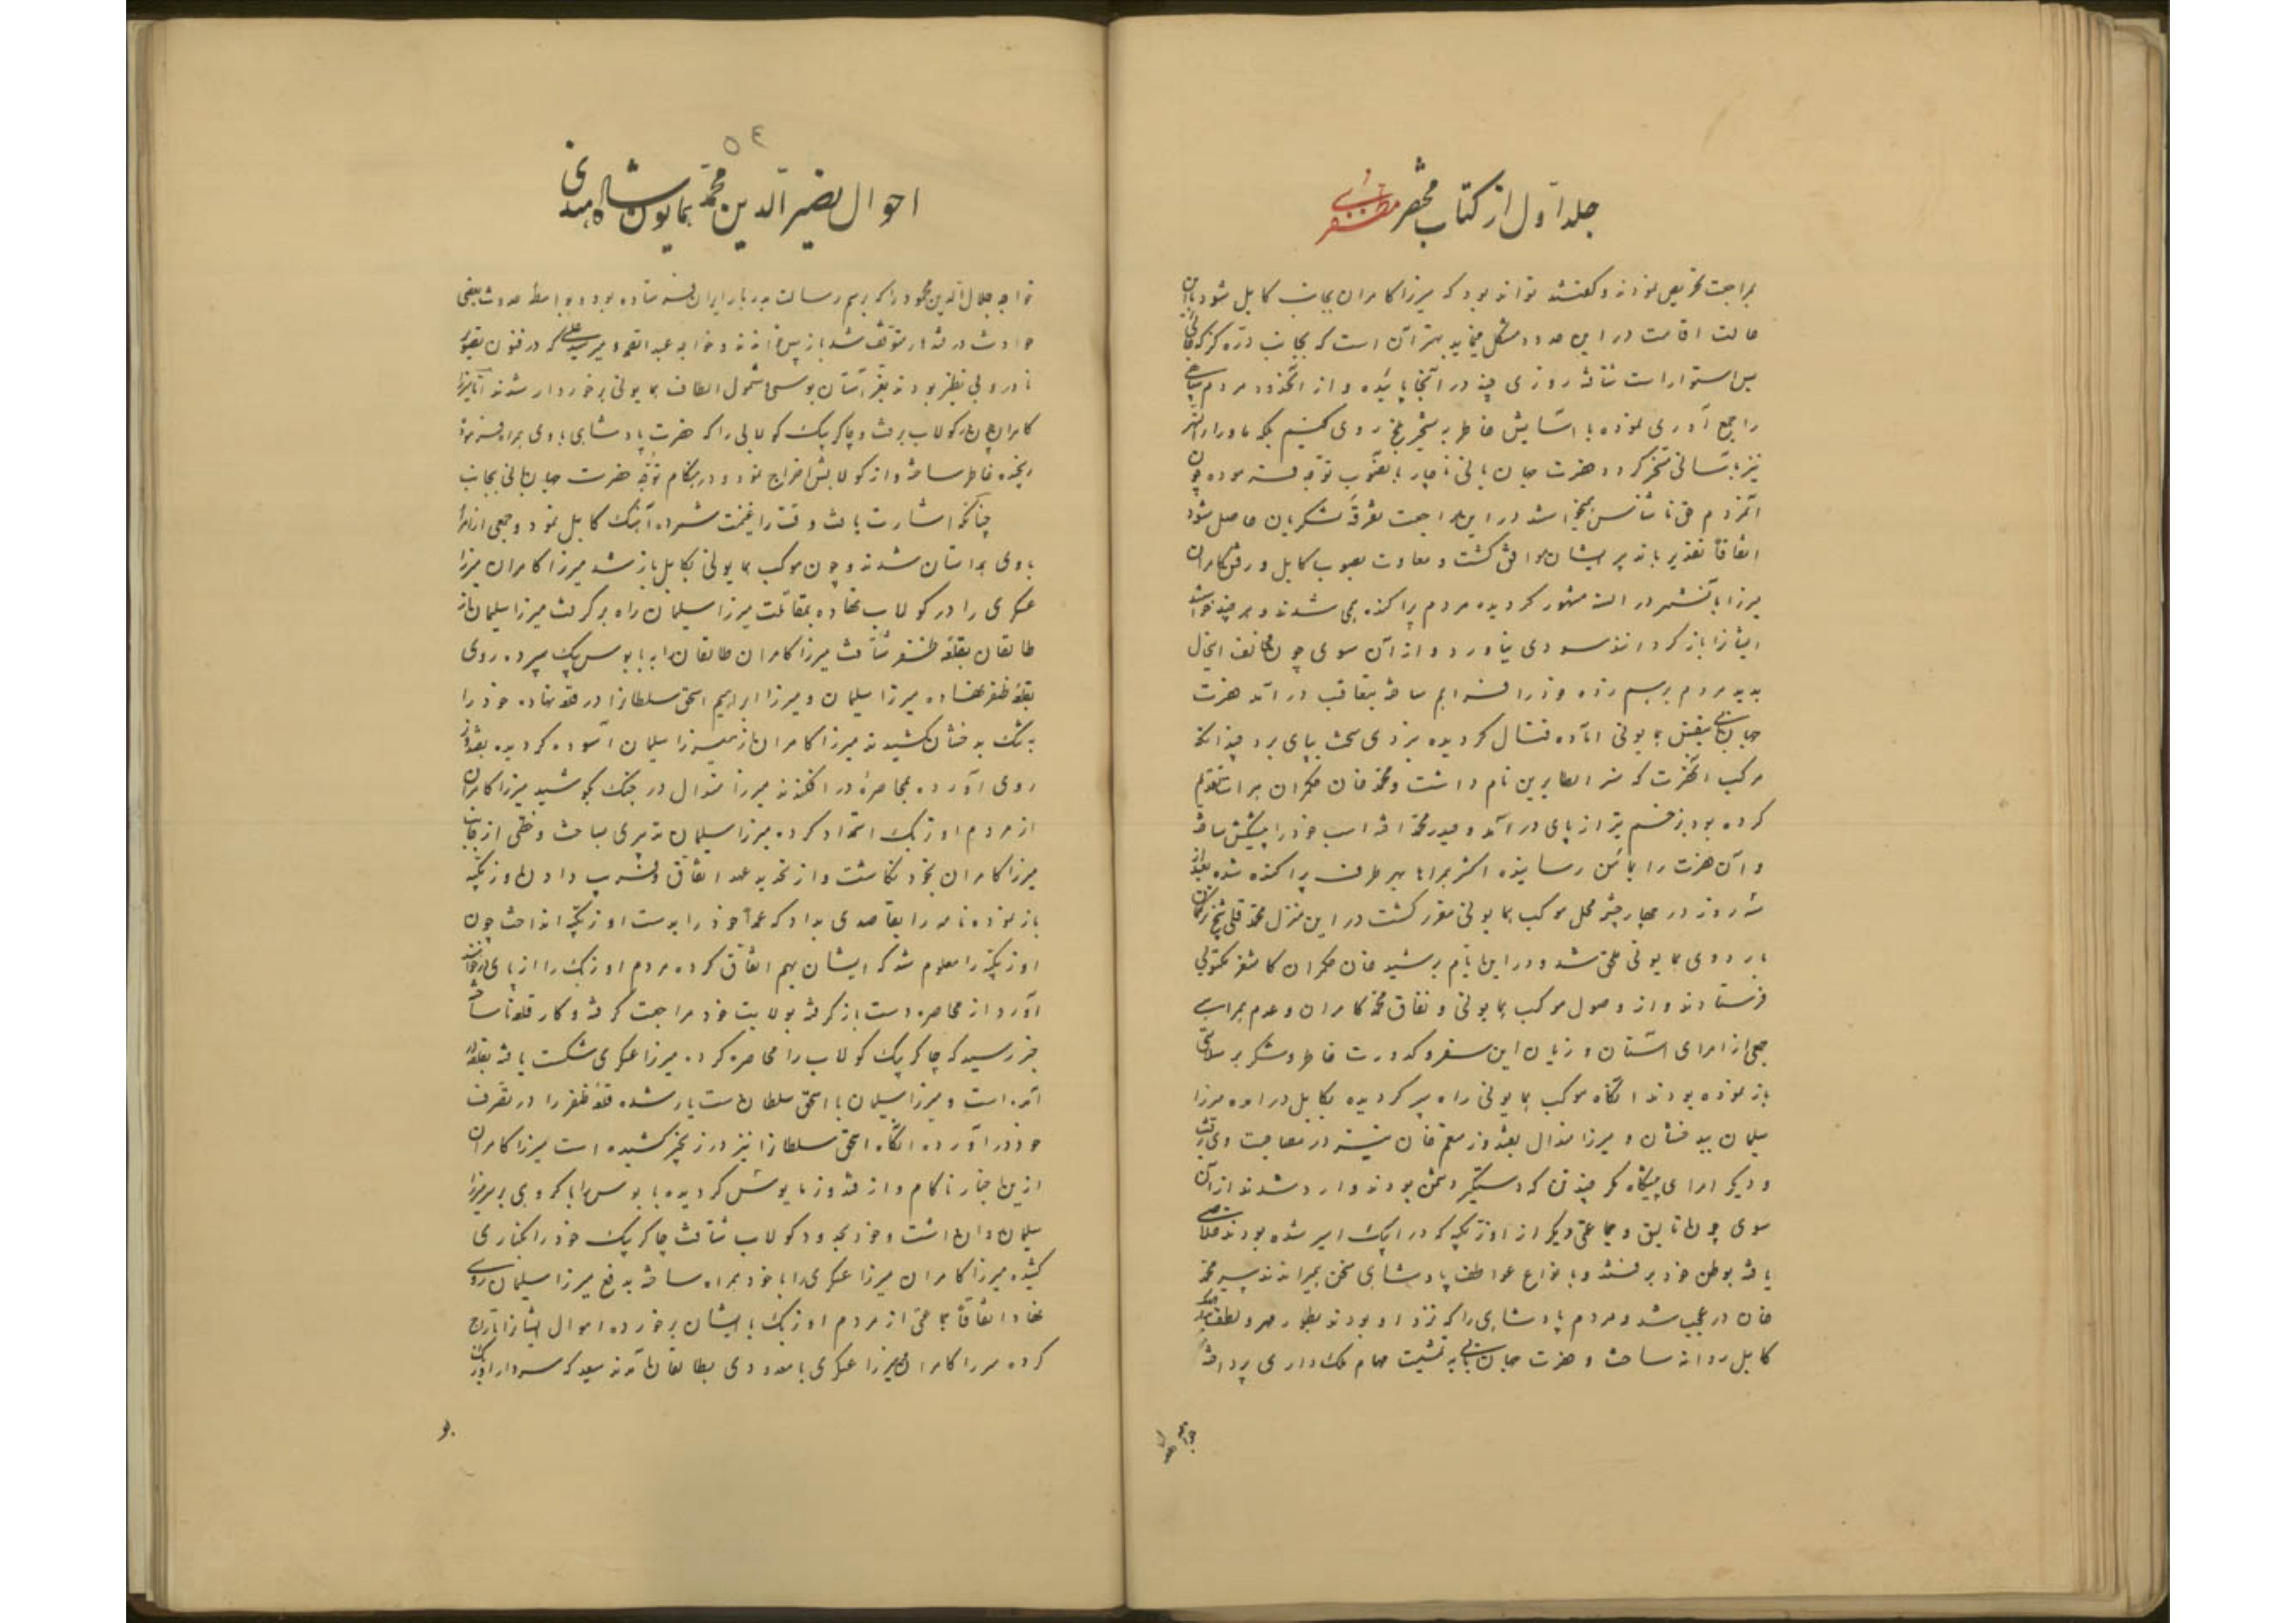 جلد اول از کتاب مختصر
بمراجعت تحریص نمودند و گفتند تواند بود که میرزا کامران بجانب کابل شود با این
حالت اقامت در این حدود مشکل مینماید بهتر آن است که بجانب دره گز که
بس استوار است شتافته روزی چند در آنجا پائیده و از آنحدود مردم
را جمع آوری نموده با آسایش خاطر به تسخیر بلخ روی کنیم بلکه ماوراءالنهر
نیز بآسانی مسخر گردد حضرت جهان بانی ناچار بتصویب توجه فرموده چون
در این مراجعت تفرقه لشکریان حاصل شود
اتفاقاً تقدیر با تدبیر ایشان موافق گشت و معاودت بصوب کابل و رفتن کامران
میرزا در السنه مشهور گردیده مردم پراکنده همی شدند و هر چند خواستند
ایشانرا بازگردانند سودی نیاورد و از آن سوی چون مخالف اینحال
بدید مردم برسم زده خود را فراهم ساخته بتعاقب در آمد حضرت
جهانبانی بنفس همایونی آماده قتال گردیده نبردی سخت بپای برد چندانکه
مرکب آنحضرت که نام داشت و محمد خان حکمران هرات تقدیم
کرده بود بزخم تیر از پای درآمد و حیدر محمد اخته اسب خود را پیشکش ساخته
و آن حضرت را بمأمن رسانیده اکثر همراهان بهر طرف پراکنده شده بعد از
سه روز در چهار چشمه محل موکب همایونی مقرر گشت در این منزل محمد قلی شیخ
باردوی همایونی ملحق شد و در این ایام برشید خان حکمران کاشغر مکتوبی
فرستادند و از وصول موکب همایونی و نفاق محمد کامران و عدم همراهی
جمعی از امرای آستان و زیان این سفر و کدورت خاطر و شکر بر سلامتی
باز نموده بودند آنگاه موکب همایونی راه سپر گردیده بکابل در آمده میرزا
سلیمان ببدخشان و میرزا هندال بقندوز منعم خان نیز در مصاحبت وی برفت
و دیگر امرای پیشگاه مگر چند تن که دستگیر دشمن بودند وارد شدند از آن
سوی چون اتالیق و جماعتی دیگر از اوزبکیه که در ایبک اسیر شده بودند خلاصی
یافته بوطن خود برفتند و بانواع عواطف پادشاهی سخن میراندند پیر محمد
خان در عجب شد و مردم پادشاهی را که نزد او بودند بطور مهر و لطف
کابل روانه ساخت و حضرت جهان بانی به تمشیت مهام ملک داری پرداخته
خواجه جلال
۵۴
احوال نصیر الدین محمد همایون شاه هندی
خواجه جلال الدین محمود را که برسم رسالت بدربار ایران فرستاده بود و بواسطه حدوث بعضی
حوادث در قندهار متوقف شد باز پس خواندند و خواجه عبدالصمد و میر سید علی که در فنون تصویر
نادر و بی نظیر بودند آستان بوسی شمول الطاف همایونی برخوردار شدند اما میرزا
کامران چون بکولاب برفت و چاکر بیک کولابی را که حضرت پادشاهی با وی همراه فرموده
رنجیده خاطر ساخته و از کولابش اخراج نمود و در هنگام توجه حضرت جهان بانی بجانب
چنانکه اشارت یافت وقت را غنیمت شمرده آهنگ کابل نمود و جمعی از امرا
با وی همداستان شدند و چون موکب همایونی بکابل باز شد میرزا کامران میرزا
عسکری را در کولاب نهاده بمقاتلت میرزا سلیمان راه برگرفت میرزا سلیمان از
طالقان بقلعه ظفر شتافت میرزا کامران طالقان را به بابوس بیک سپرده روی
بقلعه ظفر نهاده میرزا سلیمان و میرزا ابراهیم اسحق سلطانرا در قلعه نهاده خود را
به تنگ بدخشان کشیدند میرزا کامران از میرزا سلیمان آسوده گردیده بقندوز
روی آورده بمحاصره در افکندند میرزا هندال در جنگ بکوشید میرزا کامران
از مردم اوزبک استمداد کرده میرزا سلیمان تدبیری بساخت و خطی از جانب
میرزا کامران بخود نگاشت و از تجدید عهد اتفاق و فریب دادن اوزبکیه
باز نموده نامه را بقاصدی بداد که عمداً خود را بدست اوزبکیه انداخت چون
اوزبکیه را معلوم شد که ایشان بهم اتفاق کرده مردم اوزبک را از پای
آورد از محاصره دست باز گرفته بولایت خود مراجعت گرفته و کار قلعه ناساخته
خبر رسید که چاکر بیک کولاب را محاصره کرده میرزا عسکری شکست یافته بقلعه در
آمده است و میرزا سلیمان با اسحق سلطان دست یار شده قلعه ظفر را در تصرف
خود در آورده آنگاه اسحق سلطانرا نیز در زنجیر کشیده است میرزا کامران
از این اخبار ناکام و از قندوز مایوس گردیده بابوس را با گروهی بر سر میرزا
سلیمان روان داشت و خود بحدود کولاب شتافت چاکر بیک خود را بکناری
کشید میرزا کامران میرزا عسکری را با خود همراه ساخته بدفع میرزا سلیمان روی
نهاد اتفاقاً جماعتی از مردم اوزبک با ایشان برخورده اموال ایشانرا تاراج
کرده میرزا کامران و میرزا عسکری با معدودی بطالقان آمدند سعید که سردار اوزبک
بود